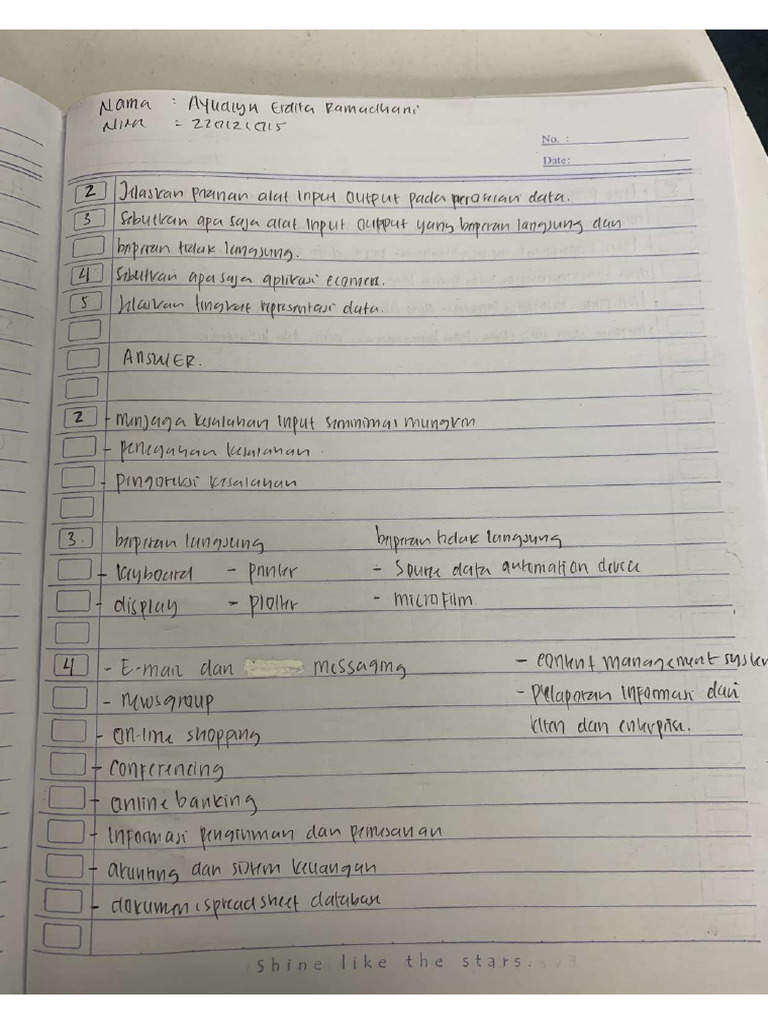 Nama : Ayudiya Erdita Ramadhani
Nim : 220121015
No. :
Date:
2 Jelaskan peranan alat input output pada perolehan data.
3 Sebutkan apa saja alat input output yang berperan langsung dan
berperan tidak langsung.
4 Sebutkan apa saja aplikasi ecomers.
5 Jelaskan tingkat representasi data.
ANSWER.
2 - menjaga kesalahan input seminimal mungkin
- pencegahan kesalahan.
- pengoreksi kesalahan
3. berperan langsung berperan tidak langsung
- keyboard - printer - source data automation device
- display - plotter - microfilm.
4 - E-mail dan messaging - content management system
- newsgroup - pelaporan informasi dari
- on-line shopping klien dan enterprise.
- conferencing
- online banking
- informasi pengiriman dan pemesanan
- akunting dan sistem keuangan
- dokumen, spreadsheet database
Shine like the stars.